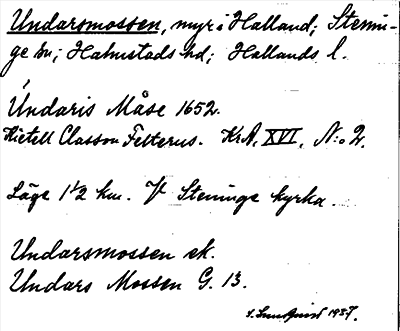 Undarsmossen, myr i Halland; Stenin-
ge sn; Halmstads hd; Hallands l.
Úndaris Måse 1652.
Kietell Classon Felterus. KrA, XVI, N:o 2.
Läge 1½ km. V Steninge kyrka.
Undarsmossen ek.
Undars Mossen G. 13.
Lundquist 1937.